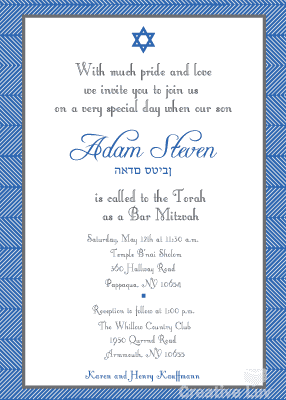 With much pride and love
we invite you to join us
on a very special day when our son
Adam Steven
האדם סטיבן
is called to the Torah
as a Bar Mitzvah
Saturday, May 12th at 11:30 a.m.
Temple B'nai Sholom
560 Hallway Road
Pappaqua, NY 10654
Reception to follow at 1:00 p.m.
The Whillow Country Club
1950 Quirred Road
Aramouth, NY 10655
Karen and Henry Kauffmann
Creative Luv